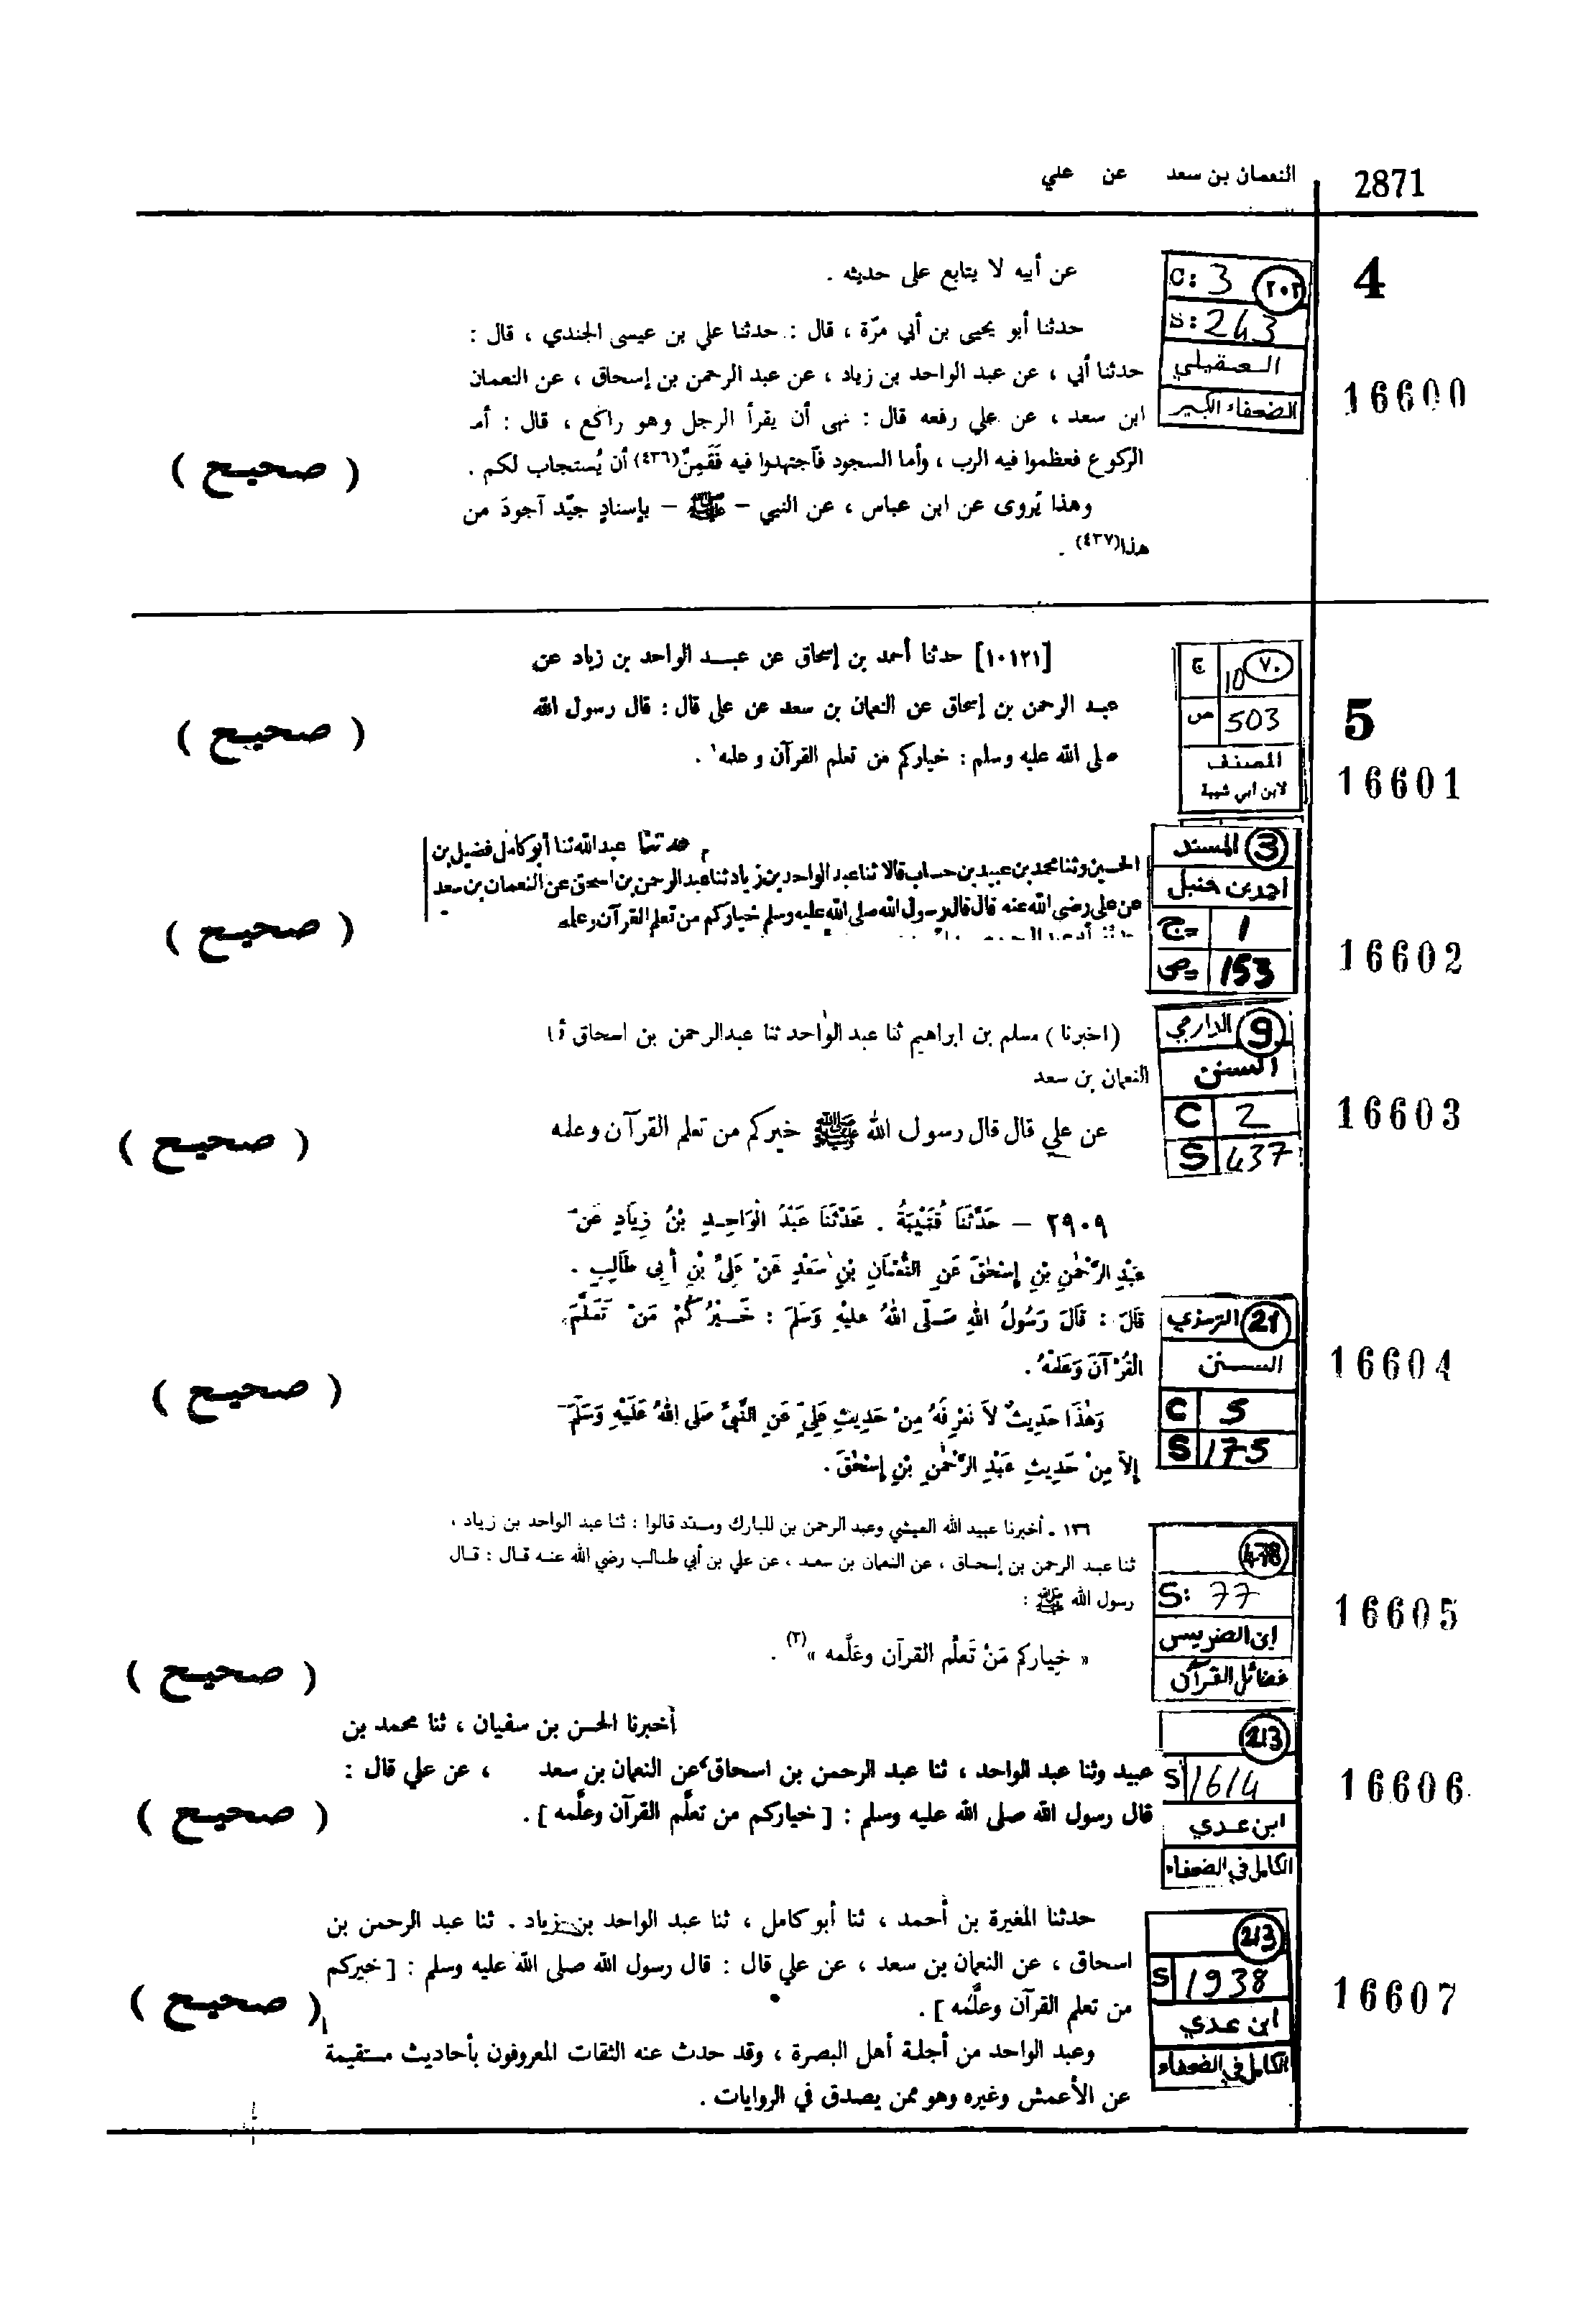 2871
النعمان بن سعد عن علي
4
16600
C: 3
٢٠٢
S: 243
العقيلي
الضعفاء الكبير
عن أبيه لا يتابع على حديثه .
حدثنا أبو يحيى بن أبي مرّة ، قال : حدثنا علي بن عيسى الجندي ، قال :
حدثنا أبي ، عن عبد الواحد بن زياد ، عن عبد الرحمن بن إسحاق ، عن النعمان
ابن سعد ، عن علي رفعه قال : نهى أن يقرأ الرجل وهو راكع ، قال : أم
الركوع فعظموا فيه الرب ، وأما السجود فآجتهدوا فيه فَقَمِنٌ(٤٣٦) أن يُستجاب لكم .
( صحيح )
وهذا يُروى عن ابن عباس ، عن النبي – ﷺ – بإسنادٍ جيّد آجودَ من
هذا(٤٣٧) .
5
16601
ج 10 ٧٠
ص 503
المصنف
لابن أبي شيبة
[١٠١٢١] حدثنا أحمد بن إسحاق عن عبد الواحد بن زياد عن
عبد الرحمن بن إسحاق عن النعمان بن سعد عن على قال : قال رسول الله
صلى الله عليه وسلم : خياركم من تعلم القرآن وعلمه .
( صحيح )
16602
3 المسند
أحمد بن حنبل
ج= 1
ص= 153
حدثنا عبد الله ثنا أبو كامل فضيل بن
الحسين وثنا محمد بن عبيد بن حساب قالا ثنا عبد الواحد بن زياد ثنا عبد الرحمن بن اسحق عن النعمان بن سعد
عن على رضى الله عنه قال قال رسول الله صلى الله عليه وسلم خياركم من تعلم القرآن وعلمه
( صحيح )
16603
9 الدارمي
السنن
C 2
S 437
(اخبرنا) مسلم بن ابراهيم ثنا عبد الواحد ثنا عبدالرحمن بن اسحاق
النعمان بن سعد
عن علي قال قال رسول الله ﷺ خيركم من تعلم القرآن وعلمه
( صحيح )
16604
21 الترمذي
السنن
C 5
S 175
٢٩٠٩ – حَدَّثَنَا قُتَيْبَةُ . حَدَّثَنَا عَبْدُ الْوَاحِدِ بْنُ زِيَادٍ عَنْ
عَبْدِ الرَّحْمٰنِ بْنِ إِسْحٰقَ عَنِ النُّعْمَانِ بْنِ سَعْدٍ عَنْ عَلِىِّ بْنِ أَبِى طَالِبٍ .
قَالَ : قَالَ رَسُولُ اللهِ صَلَّى اللهُ عَلَيْهِ وَسَلَّمَ : خَيْرُكُمْ مَنْ تَعَلَّمَ
الْقُرْآنَ وَعَلَّمَهُ .
( صحيح )
وَهٰذَا حَدِيثٌ لاَ نَعْرِفُهُ مِنْ حَدِيثِ عَلِىٍّ عَنِ النَّبِىِّ صَلى اللهُ عَلَيْهِ وَسَلَّمَ
إِلاَّ مِنْ حَدِيثِ عَبْدِ الرَّحْمٰنِ بْنِ إِسْحٰقَ .
16605
478
S: 77
ابن الضريس
فضائل القرآن
١٣٦ ـ أخبرنا عبيد الله العيشي وعبد الرحمن بن المبارك ومسدد قالوا : ثنا عبد الواحد بن زياد ،
ثنا عبد الرحمن بن إسحاق ، عن النعمان بن سعد ، عن علي بن أبي طالب رضي الله عنه قال : قال
رسول الله ﷺ :
« خِياركم مَنْ تَعلَّم القرآن وعَلَّمه »(٣) .
( صحيح )
16606
213
S 1614
ابن عدي
الكامل في الضعفاء
أخبرنا الحسن بن سفيان ، ثنا محمد بن
عبيد وثنا عبد الواحد ، ثنا عبد الرحمن بن اسحاق ، عن النعمان بن سعد ، عن علي قال :
قال رسول الله صلى الله عليه وسلم : [ خياركم من تعلَّم القرآن وعلَّمه ] .
( صحيح )
16607
213
S 1938
ابن عدي
الكامل في الضعفاء
حدثنا المغيرة بن أحمد ، ثنا أبو كامل ، ثنا عبد الواحد بن زياد . ثنا عبد الرحمن بن
اسحاق ، عن النعمان بن سعد ، عن علي قال : قال رسول الله صلى الله عليه وسلم : [ خيركم
من تعلم القرآن وعلَّمه ] .
( صحيح )
وعبد الواحد من أجلة أهل البصرة ، وقد حدث عنه الثقات المعروفون بأحاديث مستقيمة
عن الأعمش وغيره وهو ممن يصدق في الروايات .